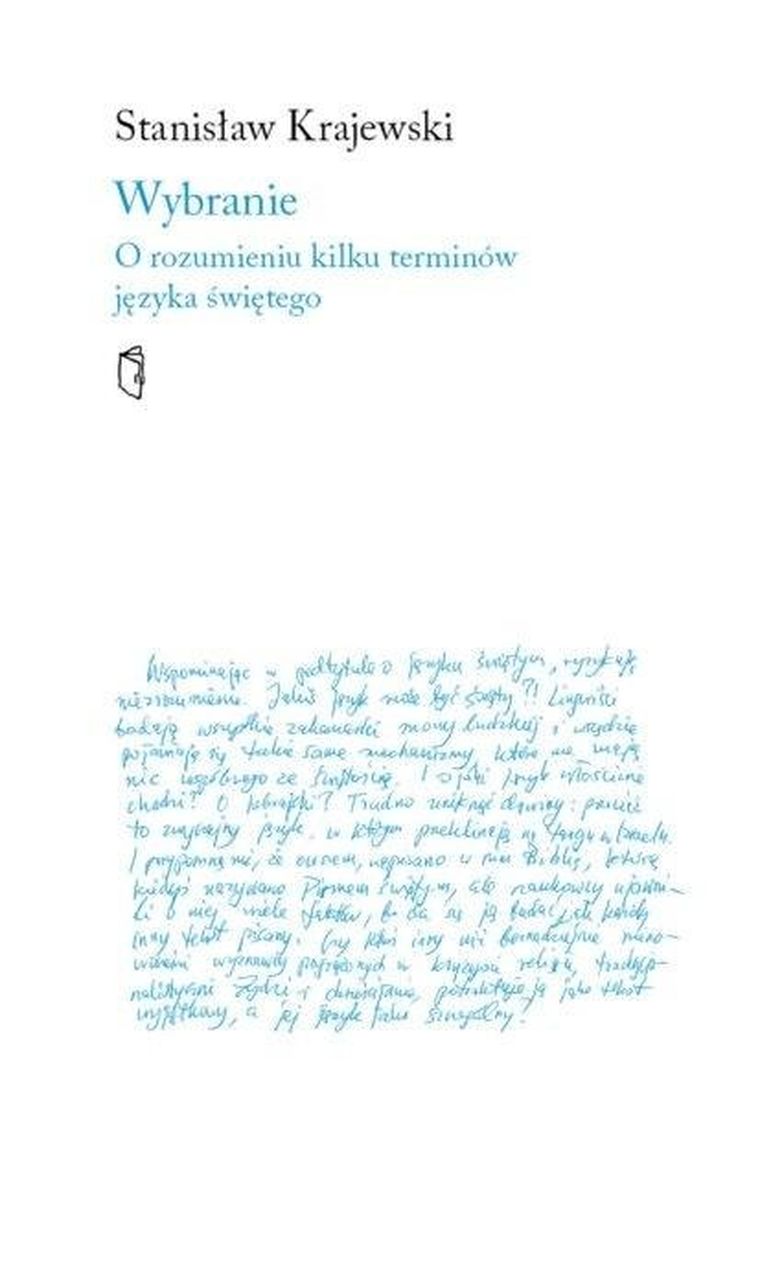 Stanisław Krajewski
Wybranie
O rozumieniu kilku terminów
języka świętego
Wspominając w podtytule o języku świętym, ryzykuję
niezrozumienie. Jakiś język może być święty?! Lingwiści
badają wszystkie zakamarki mowy ludzkiej i wszędzie
pojawiają się takie same mechanizmy, które nie mają
nic wspólnego ze świętością. I o jaki język właściwie
chodzi? O hebrajski? Trudno uniknąć : przecież
to zwyczajny język, w którym przeklinają na targu w Izraelu.
I przypomną mi, że owszem, napisano w nim Biblię, którą
kiedyś nazywano Pismem Świętym, ale naukowcy ujawni-
li o niej wiele faktów, bo da się ją badać jak każdy
inny tekst pisany. Czy ktoś inny niż beznadziejnie
wyznawcy pogrążonych w kryzysie religii, tradycjo-
nalistyczni Żydzi i chrześcijanie, potraktuje ją jako tekst
wyjątkowy, a jej język jako szczególny?